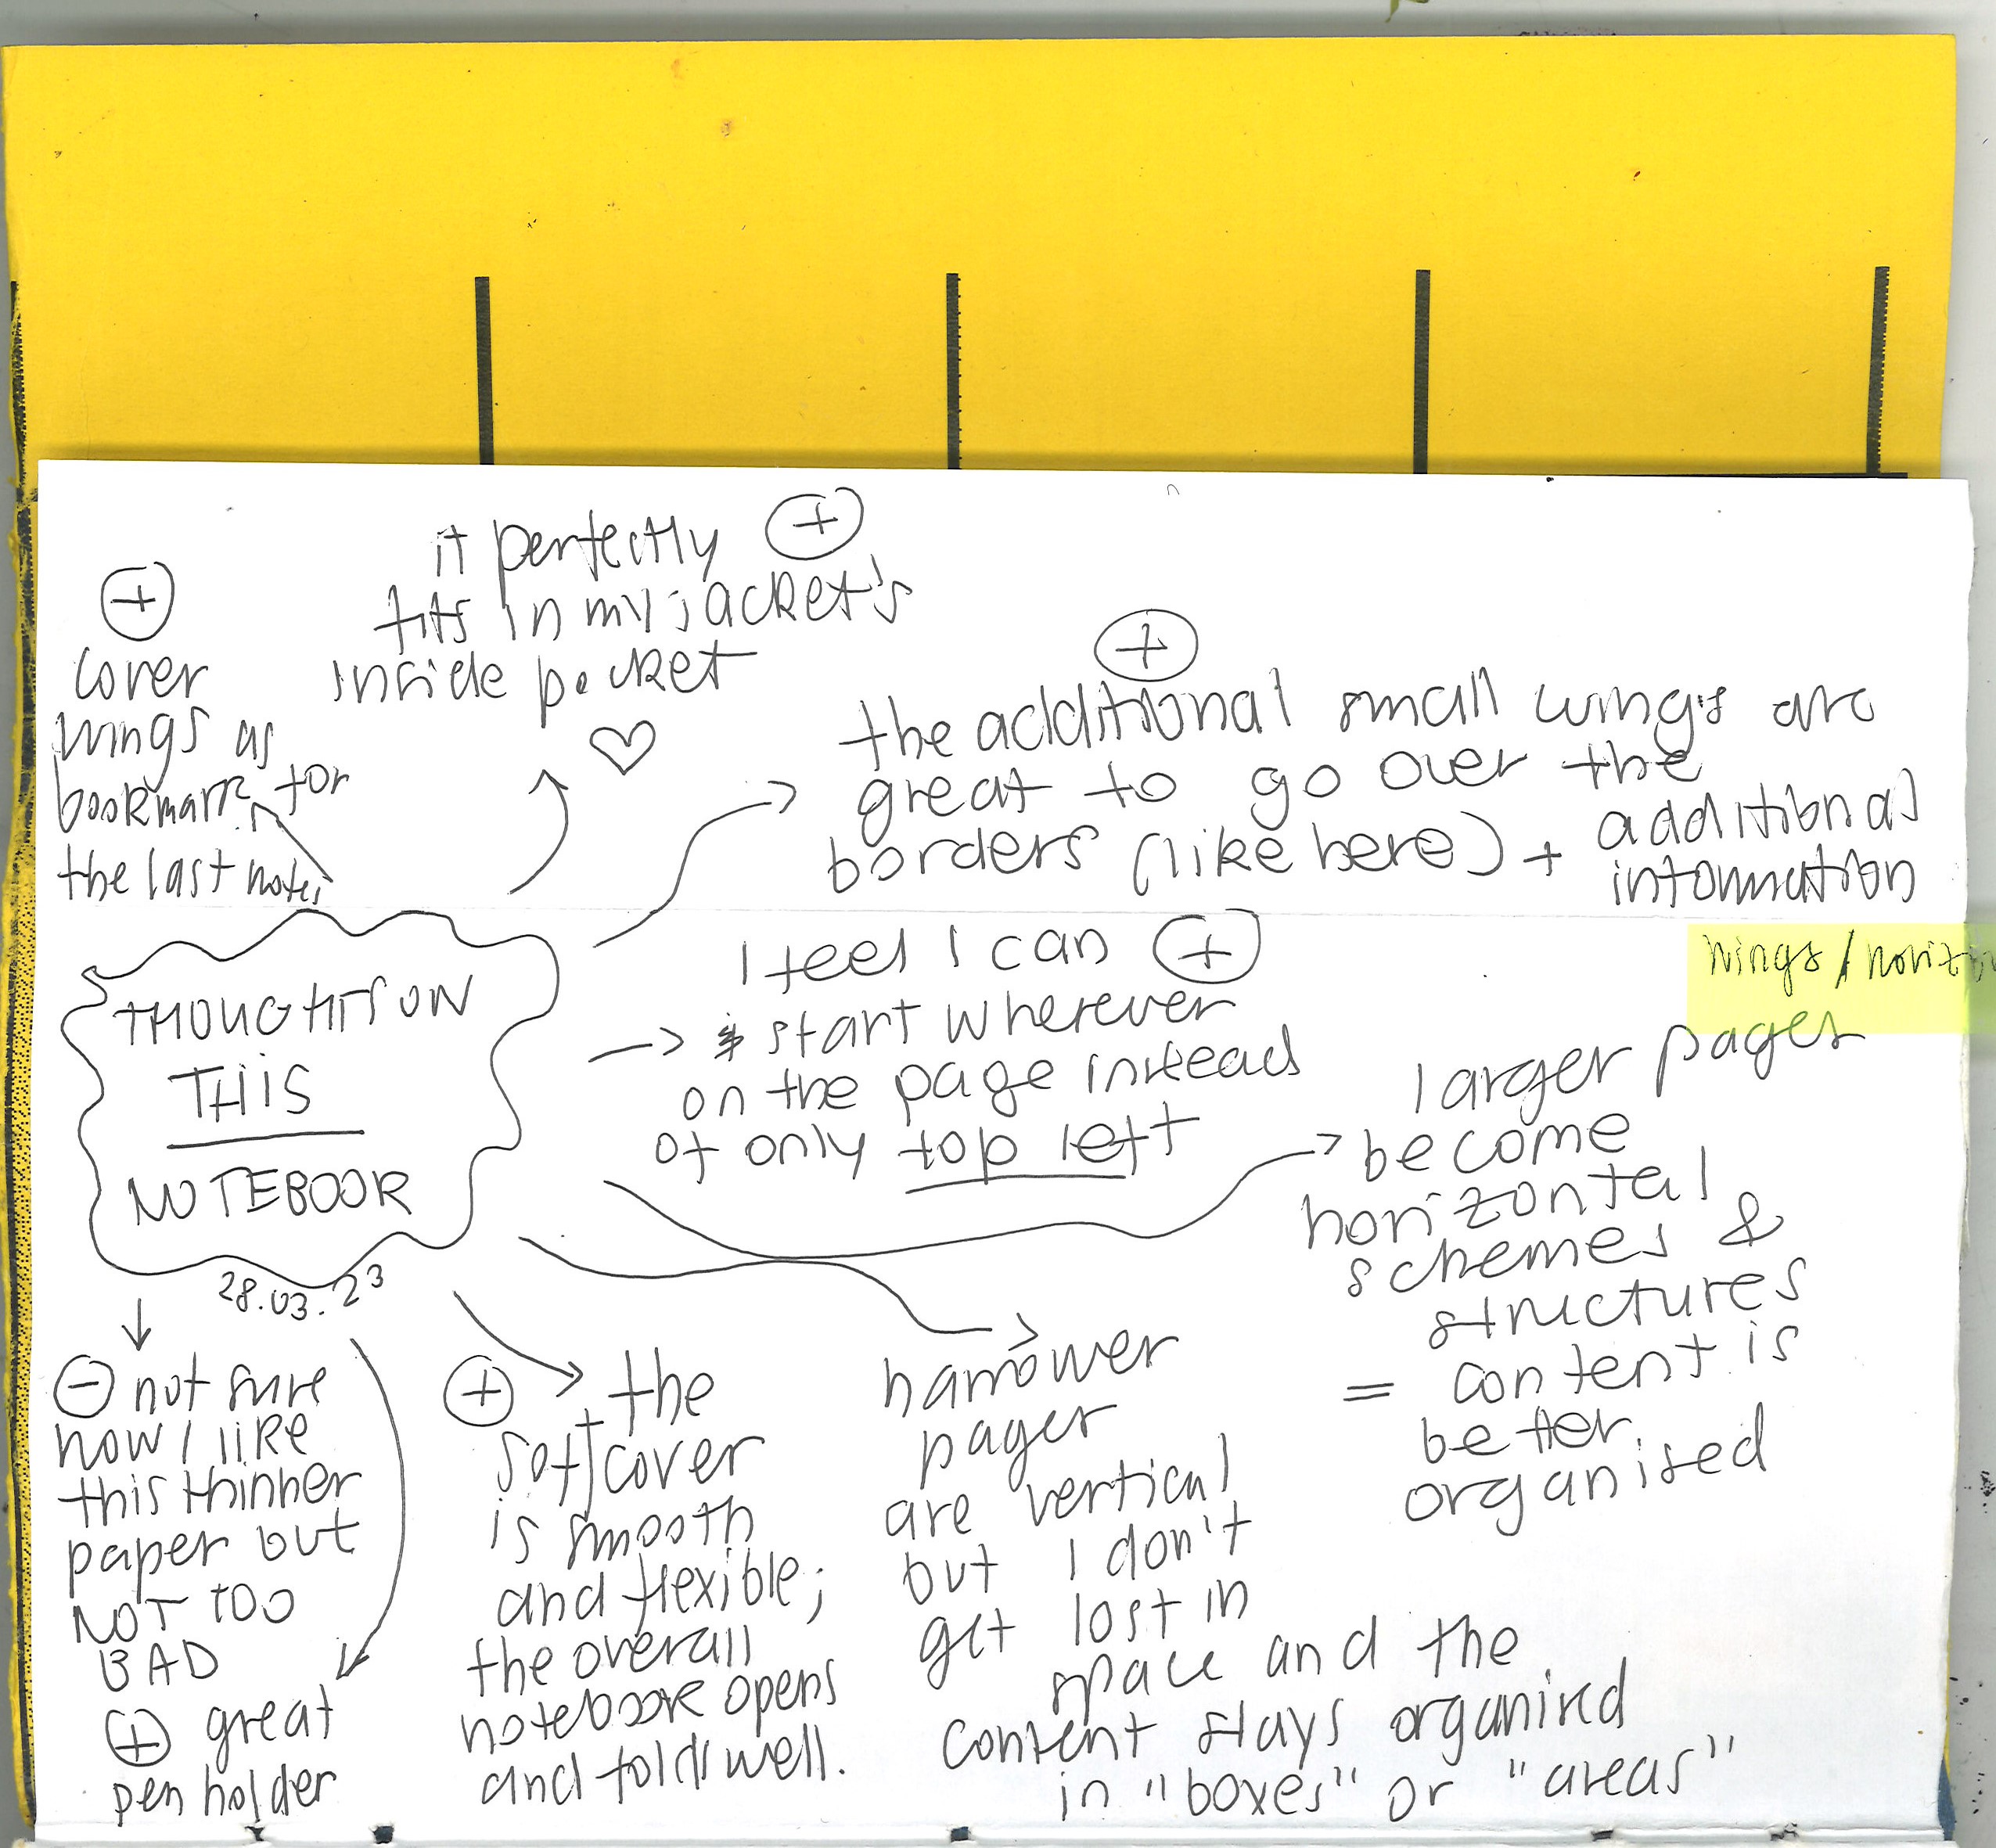 +
cover
wings as
bookmark for
the last notes
it perfectly +
fits in my jacket's
inside pocket
+
the additional small wings are
great to go over the
borders (like here) + additional
information
THOUGHTS ON
THIS
NOTEBOOK
28.03.23
I feel I can +
start wherever
on the page instead
of only top left
wings / horiz
larger pages
become
horizontal
schemes &
structures
= content is
better
organised
- not sure
how I like
this thinner
paper but
NOT TOO
BAD
+ great
pen holder
+ the
soft cover
is smooth
and flexible;
the overall
notebook opens
and folds well.
narrower
pages
are vertical
but I don't
get lost in
space and the
content stays organised
in "boxes" or "areas"